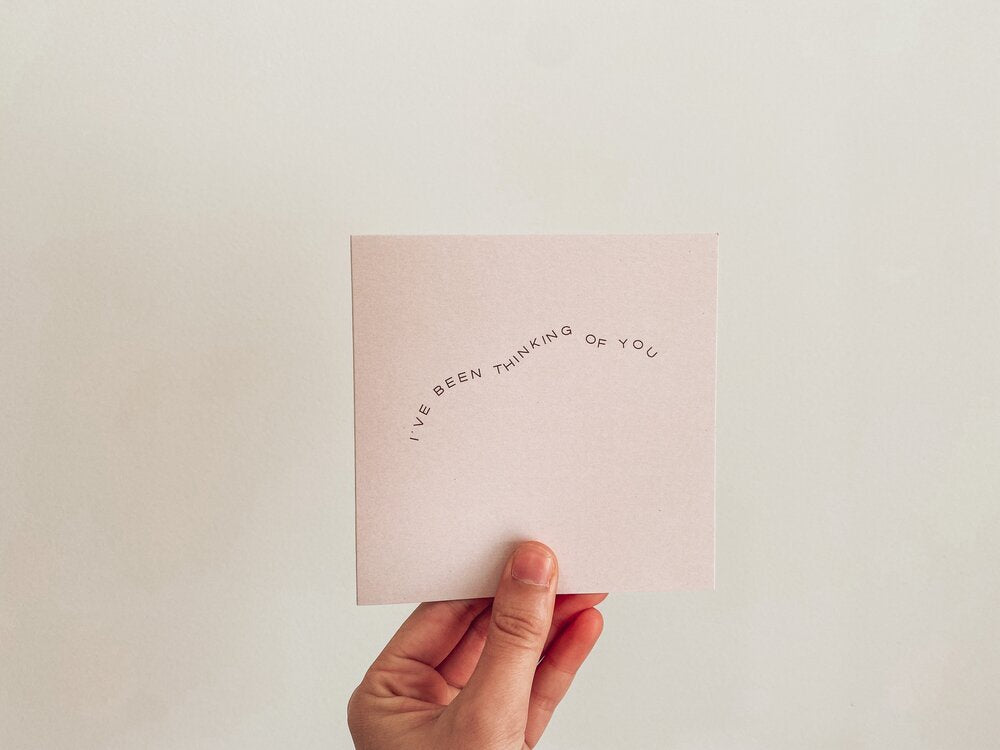 I'VE BEEN THINKING OF YOU